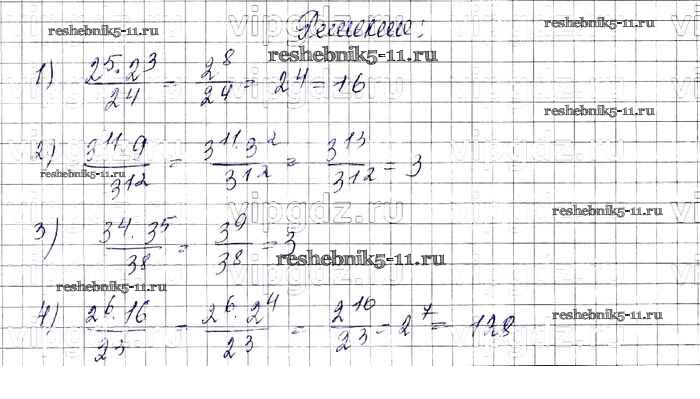 Решение:
reshebnik5-11.ru
reshebnik5-11.ru
reshebnik5-11.ru
1) 2^5·2^3/2^4 = 2^8/2^4 = 2^4 = 16
reshebnik5-11.ru
2) 3^11·9/3^12 = 3^11·3^2/3^12 = 3^13/3^12 = 3
reshebnik5-11.ru
vipgdz.ru
reshebnik5-11.ru
3) 3^4·3^5/3^8 = 3^9/3^8 = 3
reshebnik5-11.ru
reshebnik5-11.ru
reshebnik5-11.ru
4) 2^6·16/2^3 = 2^6·2^4/2^3 = 2^10/2^3 = 2^7 = 128